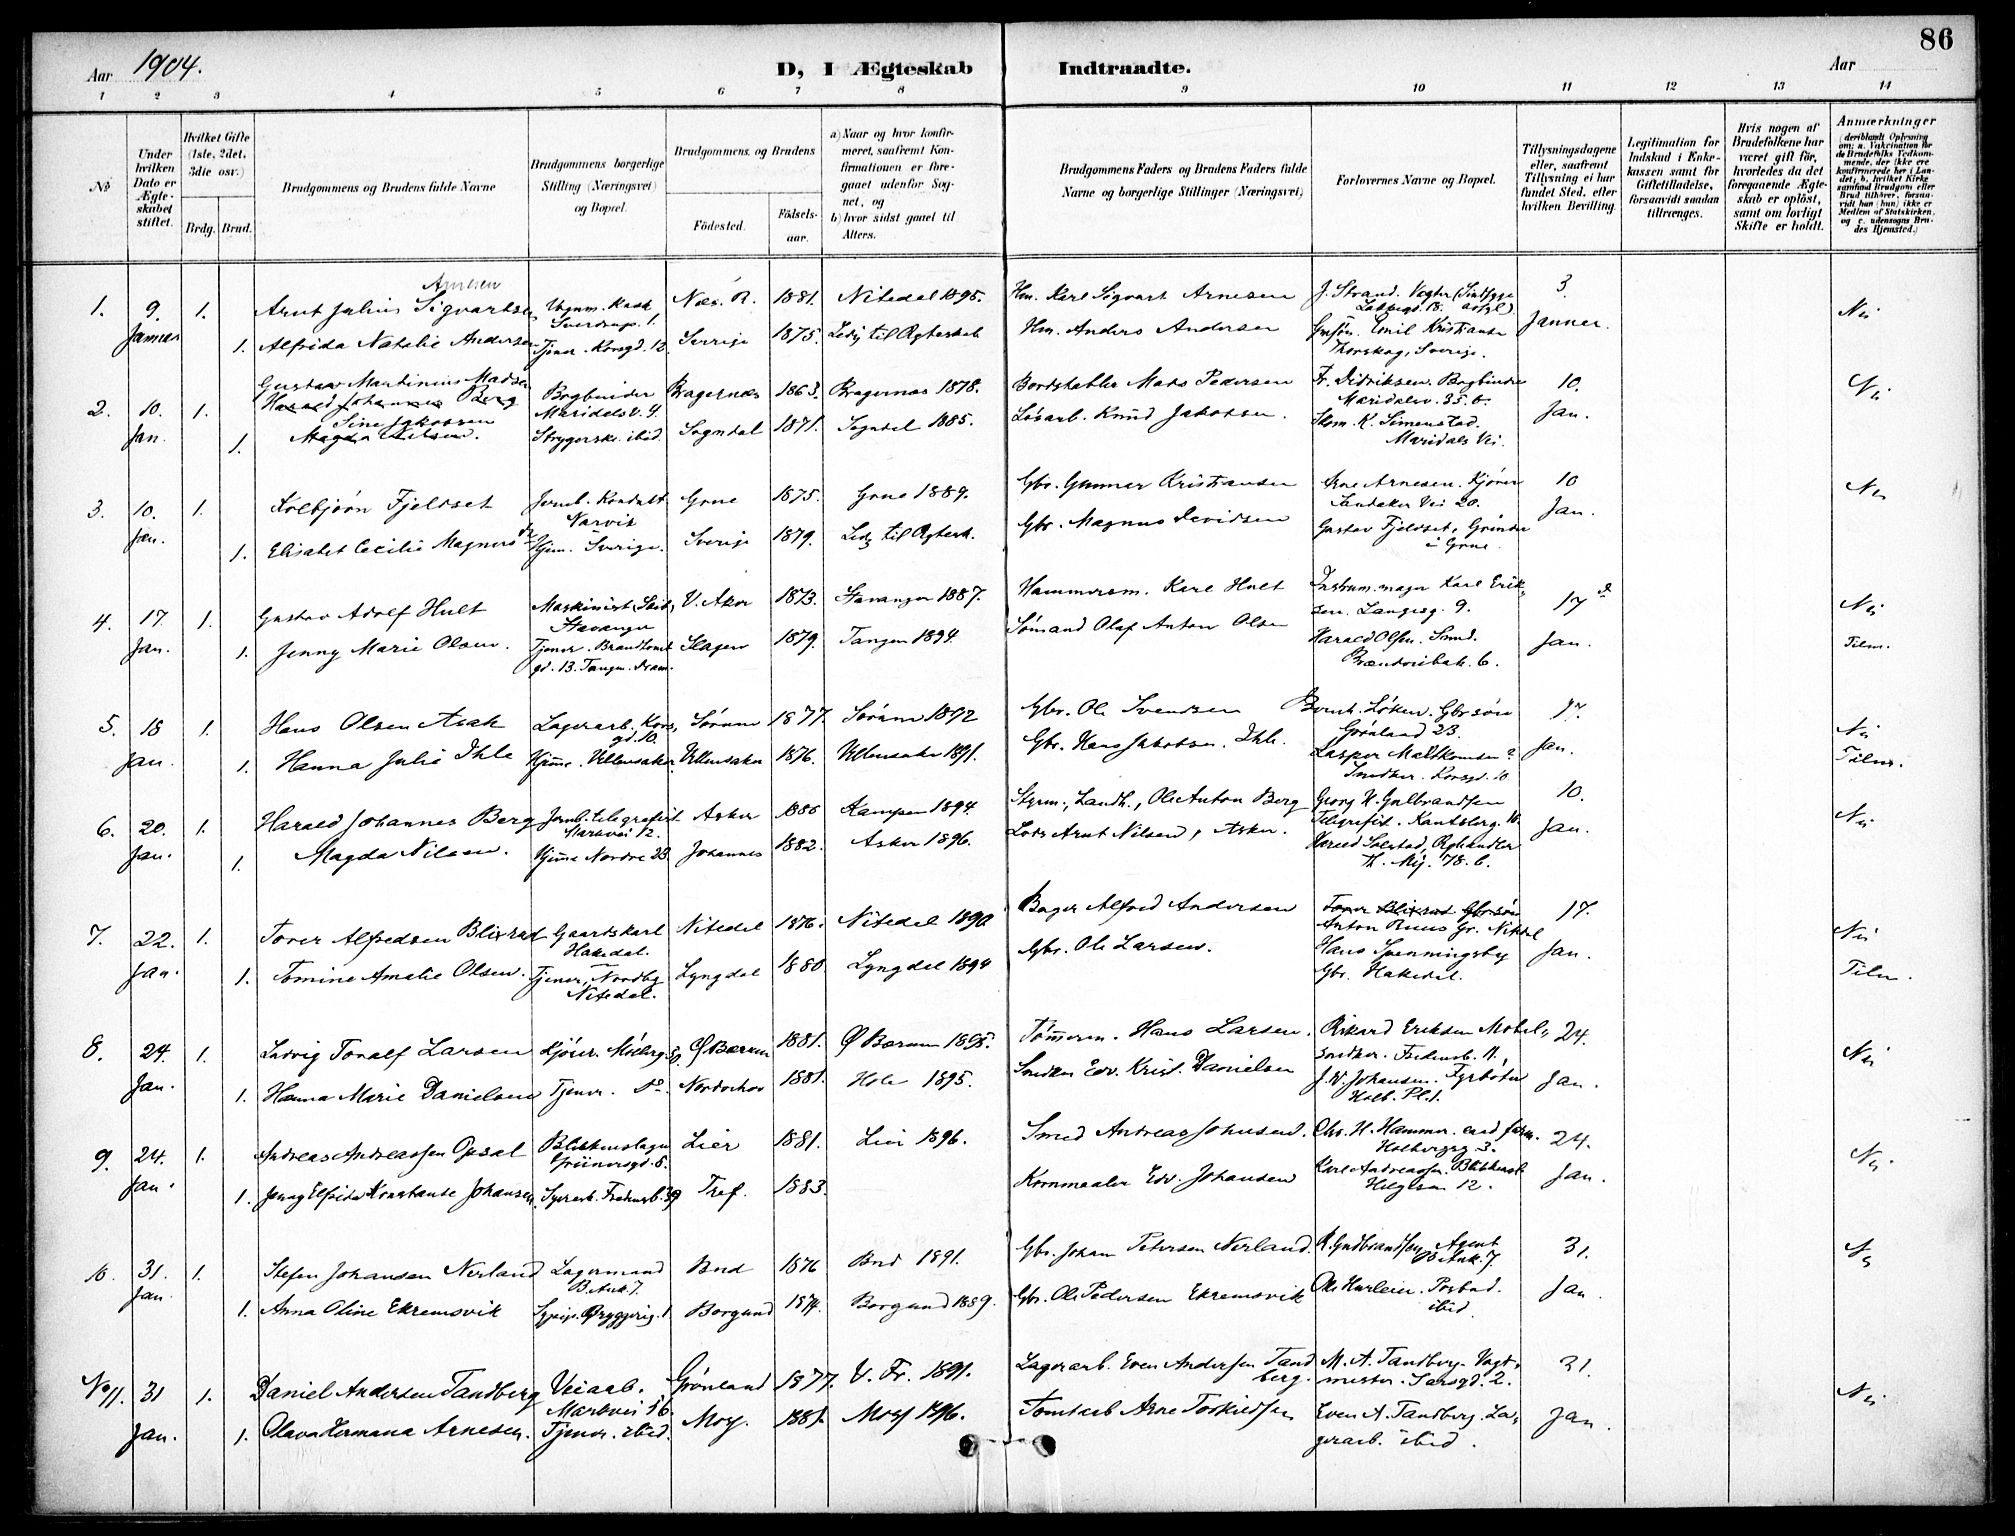 86
Aar 1904.
D, I Ægteskab Indtraadte.
Aar
1 2 3 4 5 6 7 8 9 10 11 12 13 14
No
Under hvilken Dato er Ægteskabet stiftet.
Hvilket Gifte (1ste, 2det, 3die osv.)
Brdg. Brud.
Brudgommens og Brudens fulde Navne
Brudgommens borgerlige Stilling (Næringsvei) og Bopæl.
Brudgommens og Brudens
Fødested.
Fødselsaar.
a) Naar og hvor konfirmeret, saafremt Konfirmationen er foregaaet udenfor Sognet, og
b) hvor sidst gaaet til Alters.
Brudgommens Faders og Brudens Faders fulde Navne og borgerlige Stillinger (Næringsvei)
Forlovernes Navne og Bopæl.
Tillysningsdagene eller, saafremt Tillysning ei har fundet Sted, efter hvilken Bevilling.
Legitimation for Indskud i Enkekassen samt for Giftetilladelse, forsaavidt saadan tiltrænges.
Hvis nogen af Brudefolkene har været gift før, hvorledes da det foregaaende Ægteskab er opløst, samt om lovligt Skifte er holdt.
Anmærkninger (deriblandt Oplysning om: a. Vakcination for de Brudefolks Vedkommende, der ikke ere konfirmerede her i Landet; b. hvilket Kirkesamfund Brudgom eller Brud tilhører, forsaavidt han (hun) ikke er Medlem af Statskirken, og c. udensogns Brudes Hjemsted.)
Arnesen
1. 9. 1. Arnt Julius Sigvartsen Næs. R. 1881. Nitedal 1895. Hm. Karl Sigvart Arnesen J. Strand. Vagter 3. Nei
Januar 1. Alfrida Natalie Andersen Tjener. Korsgd. 12 Sverige 1875. Ledig til Ægteskab Hm. Anders Andersen Emil Kristiansen Januar.
Thorskog, Sverige.
Gustav Martinius Madsen Bogbinder Bragernæs 1863. Bragernæs 1878. Bordstabler Mads Pedersen Fr. Didriksen. Bogbinder 10. Nei
2. 10. 1. Harald Johannes Berg Maridalsv. 9. Maridalsv. 35.b.
Jan. Sine Jakobsen
1. Magda Nilsen. Strygerske. ibid. Sogndal 1871. Sogndal 1885. Løsarb. Knud Jakobsen. Skom. K. Simenstad. Jan.
Maridals Vei.
3. 10. 1. Kolbjørn Fjeldset Jernb. Kondukt. Grue 1875. Grue 1889. Gbr. Gunnar Kristiansen Arne Arnesen. Kjører 10 Nei
Narvik Sandaker Vei 20.
Jan. 1. Elisabet Cecilie Magnus Hjem. Sverige. Sverige 1879. Ledig til Ægtesk. Gbr. Magnus Davidsen Gustav Fjeldset, Jan.
i Grue.
4. 17. 1. Gustav Adolf Hult Maskinist V. Aker 1873. Stavanger 1887. Hammersm. Karl Hult Instrum.mager Karl Eriksen. Langesg. 9. 17 Nei
Stavanger
Jan. 1. Jenny Marie Olsen. Tjener. Slagen 1879. Tangen 1894 Sømand Olaf Anton Olsen Harald Olsen. Smed. Jan. Tilm.
gd. 13. Tangen. Dram. 6.
5. 18 1. Hans Olsen Asak Lagerarb. Korsgd. 10. Sørum 1877. Sørum 1892 Gbr. Ole Svendsen Bernh. Løken. Gbrsøn 17. Nei
Grønland 23.
Jan. 1. Hanna Julie Ihle Hjeme. Ullensaker. Ullensaker 1876. Ullensaker 1891. Gbr. Hans Jakobsen. Ihle. Jan. Tilm.
Snedker. Korsgd. 10
6. 20. 1. Harald Johannes Berg Jernb. telegrafist Asker 1880 Kampen 1894. Ole Anton Berg Georg H. Gulbrandsen 10. Nei
Markvei 12. Telegrafist.
Jan. 1. Magda Nilsen. Hjeme Nordre 23. Johannes 1882. Asker 1896. Lods Arnt Nilsen, Asker. Harald Solstad, Jan.
Th. Mejg. 78. b.
7. 22. 1. Torer Alfredsen Blixrud Gaardskarl Nitedal 1876. Nitedal 1890 Bager Alfred Andersen Torer Blixrud Gbrsøn 17. Nei
Hakedal. Anton Ruus Gr. Nittedal
Jan. 1. Tomine Amalie Olsen. Tjener, Nordby Lyngdal 1880 Lyngdal 1894 Gbr. Ole Larsen. Hans Spenningsby Jan. Tilm.
Nitedal. Gbr. Hakedal.
8. 24. 1. Ludvig Toralf Larsen Kjører. Ø. Bærum 1881. Ø Bærum 1895. Tømmerm. Hans Larsen. Rikard Eriksen Møbel- 24. Nei
snedker. Fredensb. 11.
Jan. 1. Hanna Marie Danielsen Tjener. do. Norderhov 1881. Hole 1895. Snedker Edv. Krist. Danielsen J. W. Johansen. Fyrbøter Jan.
Holb. Pl. 1.
9. 24. 1. Andreas Andreassen Opsal Blikkenslager Lier 1881. Lier 1896. Smed Andreas Johnsen. Chr. H. Hammer. 24. Nei
Grünersgd. 5. Holbergsg 3.
Jan. 1. Jenny Elfrida Konstanse Johansen. Syersk. Fredensb. 39 Tref. 1883. Kornmaaler Edv. Johansen Karl Andreassen. Blikkensl. Jan.
Helgesen 12.
10. 31. 1. Stefen Johansen Nerland Lagermand Bud 1876 Bud 1891. Gbr. Johan Petersen Nerland. R. Gudbrandsen Agent 31. Nei
B. Ank. 7. B. Ank. 7.
Jan. 1. Anna Oline Ekremsvik Sypige. Bryggerig. 1 Borgund 1874. Borgund 1889. Gbr. Ole Pedersen Ekremsvik Ole Hurlein. Postbud. Jan.
ibid.
No 11. 31 1. Daniel Andersen Tandberg Veiarb. Grønland 1877. V. Fr. 1891. Lagerarb. Even Andersen Tandberg. M. A. Tandberg. Vagtmester. Sarsgd. 2. 31. Nei
Markvei 56
Jan. 1. Olava Hermana Arnesen. Tjener. ibid. Moss. 1881. Moss 1896. Tomtearb Arne Torkildsen Even A. Tandberg. La- Jan.
gerarb. ibid.